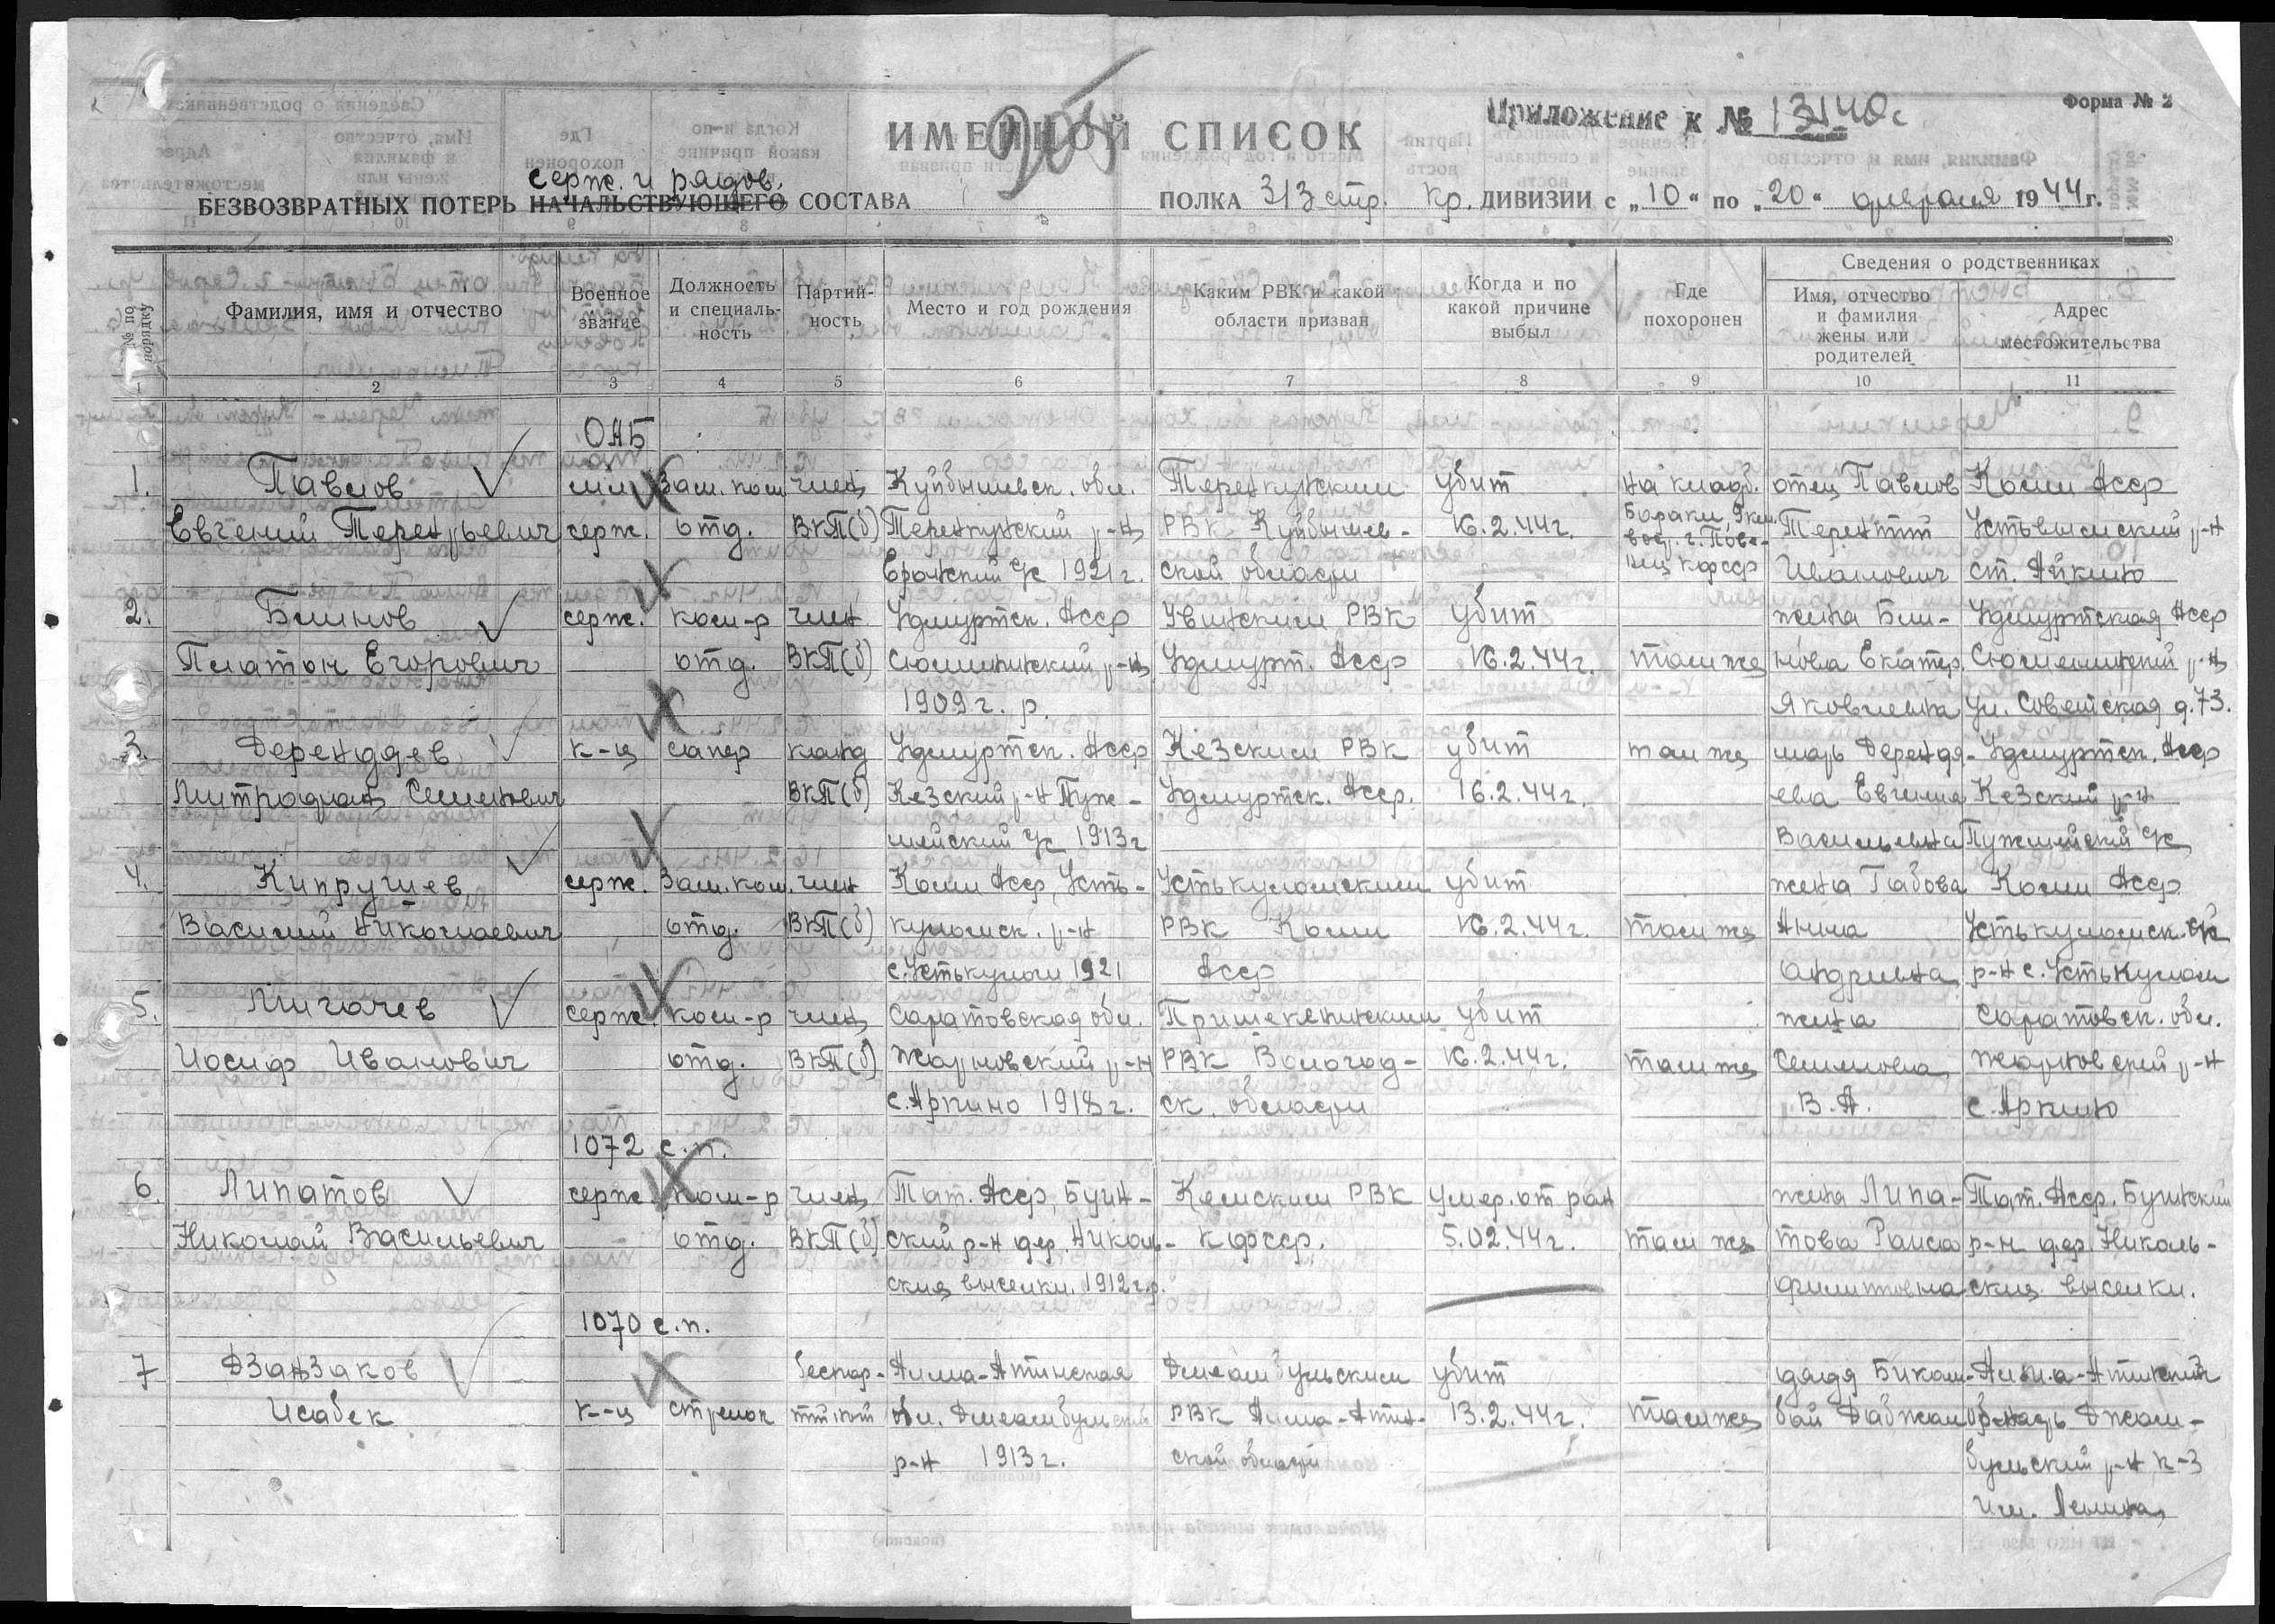 Форма № 2
Приложение к № 13140с
ИМЕННОЙ СПИСОК
серж. и рядов.
БЕЗВОЗВРАТНЫХ ПОТЕРЬ НАЧАЛЬСТВУЮЩЕГО СОСТАВА ПОЛКА 313 стр. Кр. ДИВИЗИИ с „10“ по „20“ февраля 1944 г.
№ по порядку
Фамилия, имя и отчество
Военное звание
Должность и специальность
Партийность
Место и год рождения
Каким РВК и какой области призван
Когда и по какой причине выбыл
Где похоронен
Сведения о родственниках
Имя, отчество и фамилия жены или родителей
Адрес местожительства
2 3 4 5 6 7 8 9 10 11
ОАБ
1. Павлов мл. Зам. ком. член Куйбышевск. обл. Теренкульским убит на кладб. отец Павлов Коми Асср
Евгений Терентьевич серж. отд. ВКП(б) р-н РВК Куйбышев- 16.2.44г. Терентий Устьвымский р-н
1921 г. ской области Кфсср Иванович ст. Айкино
2. Блинов серж. ком-р член Удмуртск. Асср Увинским РВК убит жена Бли- Удмуртская Асср
Платон Егорович отд. ВКП(б) Сюмсинский р-н Удмурт. Асср 16.2.44г. там же нова Екатер. Сюмсинский р-н
1909 г. р. Яковлевна ул. Советская д. 73.
3. Дерендяев к-ц сапер канд Удмуртск. Асср Кезским РВК убит там же мать Дерендя- Удмуртск. Асср
Митрофан Семенович ВКП(б) Кезский р-н Пуж- Удмуртск. Асср. 16.2.44г. ева Евгения Кезский р-н
мейский с/с 1913 г Васильевна Пужмейский с/с
4. Кипрушев серж. Зам. ком. член Коми Асср, Усть- Устькуломским убит жена Габова Коми Асср
Василий Николаевич отд. ВКП(б) куломск. р-н РВК Коми 16.2.44г. там же Анна Устькуломск.
с. Устькулом 1921 Асср Андриевна р-н с. Устькулом
5. Лигачев серж. ком-р член Саратовская обл. убит жена Саратовск. обл.
Иосиф Иванович отд. ВКП(б) р-н РВК Вологод- 16.2.44г. там же Семенова р-н
с. Аркино 1918 г. ск. области В. А. с. Аркино
1072 с. п.
6. Липатов серж. ком-р член Тат. Асср, Буин- Кемским РВК умер. от ран жена Липа- Тат. Асср. Буинский
Николай Васильевич отд. ВКП(б) ский р-н дер. Николь- Кфсср. 5.02.44г. там же това Раиса р-н дер. Николь-
ские выселки. 1912 г.р. Филитовна ские выселки.
1070 с. п.
7 Дзанзаков беспар- Алма-Атинская Джамбульским убит дядя Биком- Алма-Атинская
Исабек к-ц стрелок тийный обл. Джамбульский РВК Алма-Атин- 13.2.44г. там же бай область Джам-
р-н 1913 г. ской области бульский р-н к-з
им. Ленина